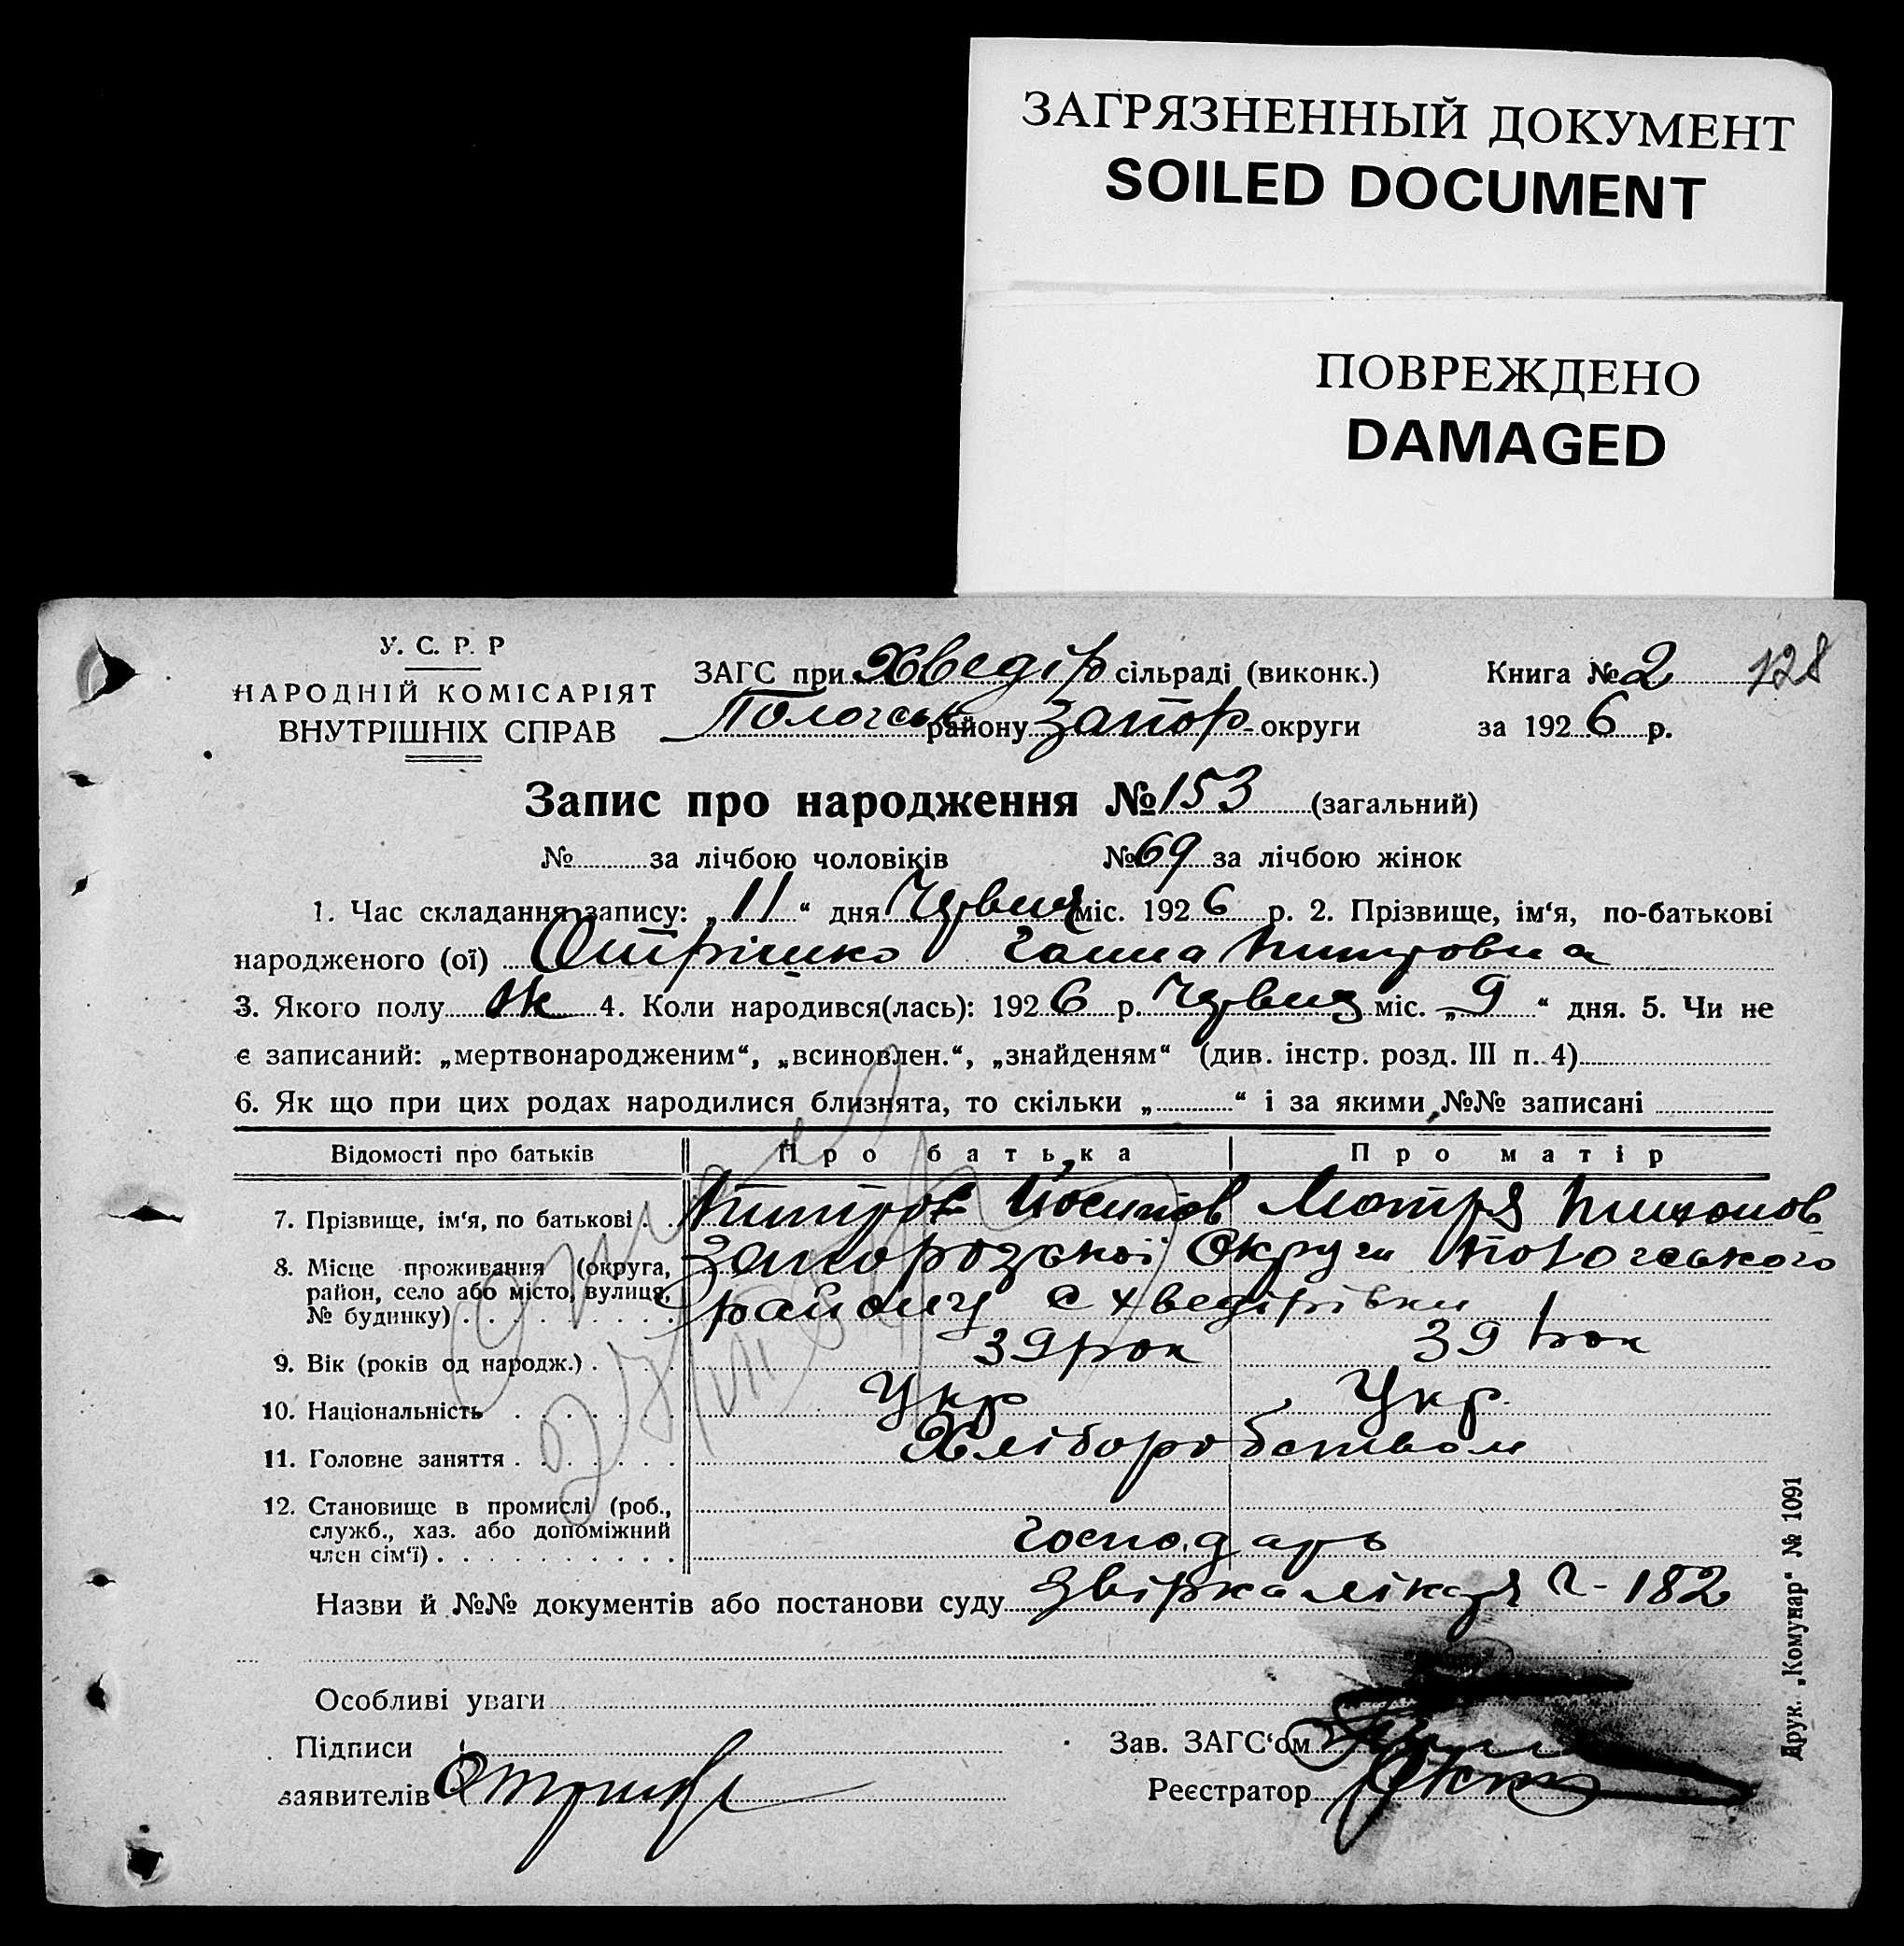 ЗАГРЯЗНЕННЫЙ ДОКУМЕНТ
SOILED DOCUMENT
ПОВРЕЖДЕНО
DAMAGED
У. С. Р. Р
НАРОДНІЙ КОМІСАРІЯТ
ВНУТРІШНІХ СПРАВ
ЗАГС при Хведір сільраді (виконк.)
Пологськ району Запор. округи
Книга № 2 128
за 1926 р.
Запис про народження № 153 (загальний)
№ за лічбою чоловіків № 69 за лічбою жінок
1. Час складання запису: „ 11 “ дня Червня міс. 1926 р. 2. Прізвище, ім‘я, по-батькові
народженого (ої) Отрішко Ганна
3. Якого полу ж 4. Коли народився(лась): 1926 р. Червня міс. „ 9 “ дня. 5. Чи не
є записаний: „мертвонародженим“, „всиновлен.“, „знайденям“ (див. інстр. розд. III п. 4)
6. Як що при цих родах народилися близнята, то скільки „ “ і за якими №№ записані
Відомості про батьків Про батька Про матір
7. Прізвище, ім‘я, по батькові . . Йосипов Мотря
8. Місце проживання (округа, Запорозької Округи Пологського
район, село або місто, вулиця, району с Хведірівки
№ будинку) . . . . . . . . .
9. Вік (років од народж.) . 39 рок 39 рок
10. Національність . . . . . . Укр Укр.
11. Головне заняття . . . . . . Хліборобством
12. Становище в промислі (роб.,
служб., хаз. або допоміжний
член сім‘ї) . . . . . . . . . . Господарь
Назви й №№ документів або постанови суду Звірка лікаря 182
Особливі уваги
Підписи
заявителів
Зав. ЗАГС‘ом
Реєстратор
Друк. „Комунар“ № 1091